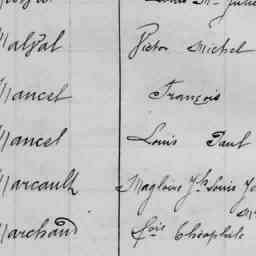 Malzal Victor Michel
Mancel François
Mancel Louis Paul
Marcault Magloire Jh Louis
Marchand fois Théophile